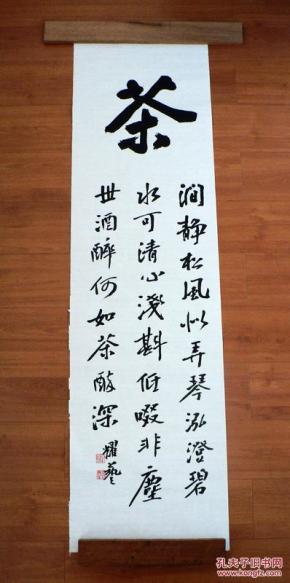 茶
涧静松风似弄琴泓澄碧
水可清心浅斟低啜非尘
世酒醉何如茶醉深
耀艺
孔夫子旧书网
www.kongfz.com